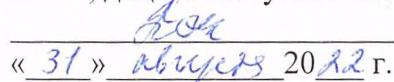 «31» августа 2022 г.